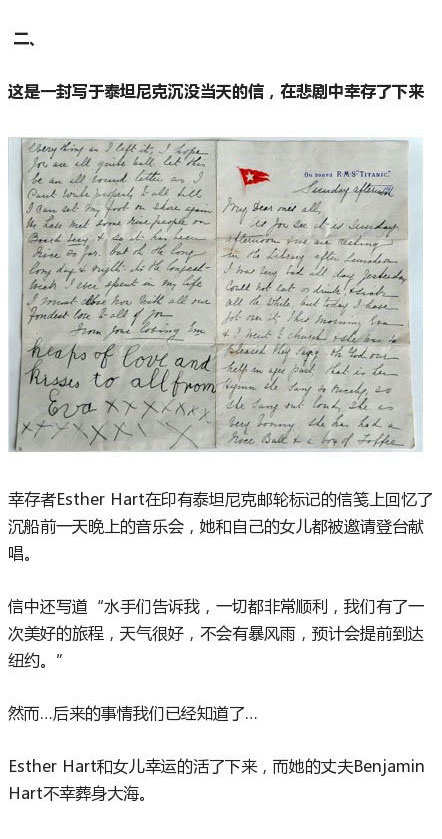 二、
这是一封写于泰坦尼克沉没当天的信，在悲剧中幸存了下来
Everything as I left it, I hope
You are all quite well let this
be an all round letter as I
Cant write properly to all till
I can set my foot on shore again
We have met some nice people on
Board Lucy & so it has been
nice so far. but oh the long
long days & nights its the longest
break I ever spent in my life
I must close now with all our
Fondest love to all of you
From your loving Em
heaps of love and
kisses to all from
Eva xxxxxxx
xxxxxxxx
On board R.M.S. "TITANIC."
Sunday afternoon
My Dear ones all,
As you see it is Sunday
afternoon & we are resting
in the Library after Luncheon
I was very bad all day yesterday
Could not eat or drink & sick
all the while, but today I have
got over it. This morning Eva
& I went to church & she was so
pleased they sang Oh God our
help in ages past that is her
hymn she sang so nicely, so
she sang out loudly She is
very bonny she has had a
nice Ball & a box of Toffee
幸存者Esther Hart在印有泰坦尼克邮轮标记的信笺上回忆了
沉船前一天晚上的音乐会，她和自己的女儿都被邀请登台献
唱。
信中还写道“水手们告诉我，一切都非常顺利，我们有了一
次美好的旅程，天气很好，不会有暴风雨，预计会提前到达
纽约。”
然而...后来的事情我们已经知道了...
Esther Hart和女儿幸运的活了下来，而她的丈夫Benjamin
Hart不幸葬身大海。